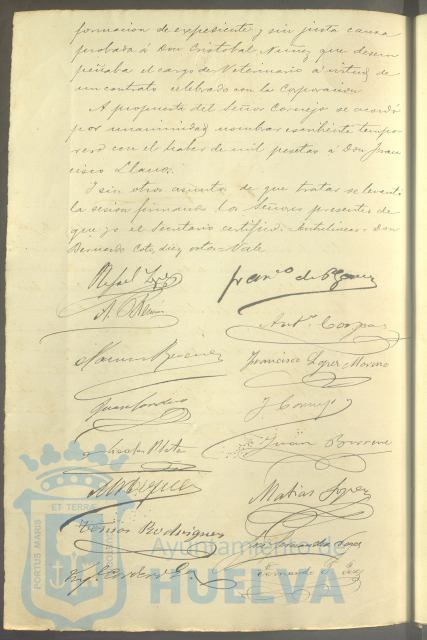 formacion de expediente y sin justa causa
probada á Don Cristobal Nuñez que desem
peñaba el cargo de Veterinario á virtud de
un contrato celebrado con la Corporacion
A propuesta del Señor Cornejo se acordó
por unanimidad nombrar escribiente tempo
rero con el haber de mil pesetas á Don Fran
cisco Llanos.
I sin otros asuntos de que tratar se levantó
la sesión firmando los Señores presentes de
que yo el Secretario certifico.= Entrelineas= Don
Bernardo Coto, diez votos= Vale
Rafael Lopez
Franco de P.
Antº Corpas
Manuel
Francisco Lopez Moreno
Juan
J Cornejo
Nicolas
Juan
Matias Lopez
Rodriguez
Fernando
PORTUS MARIS ET TERRAE
Ayuntamiento de
HUELVA